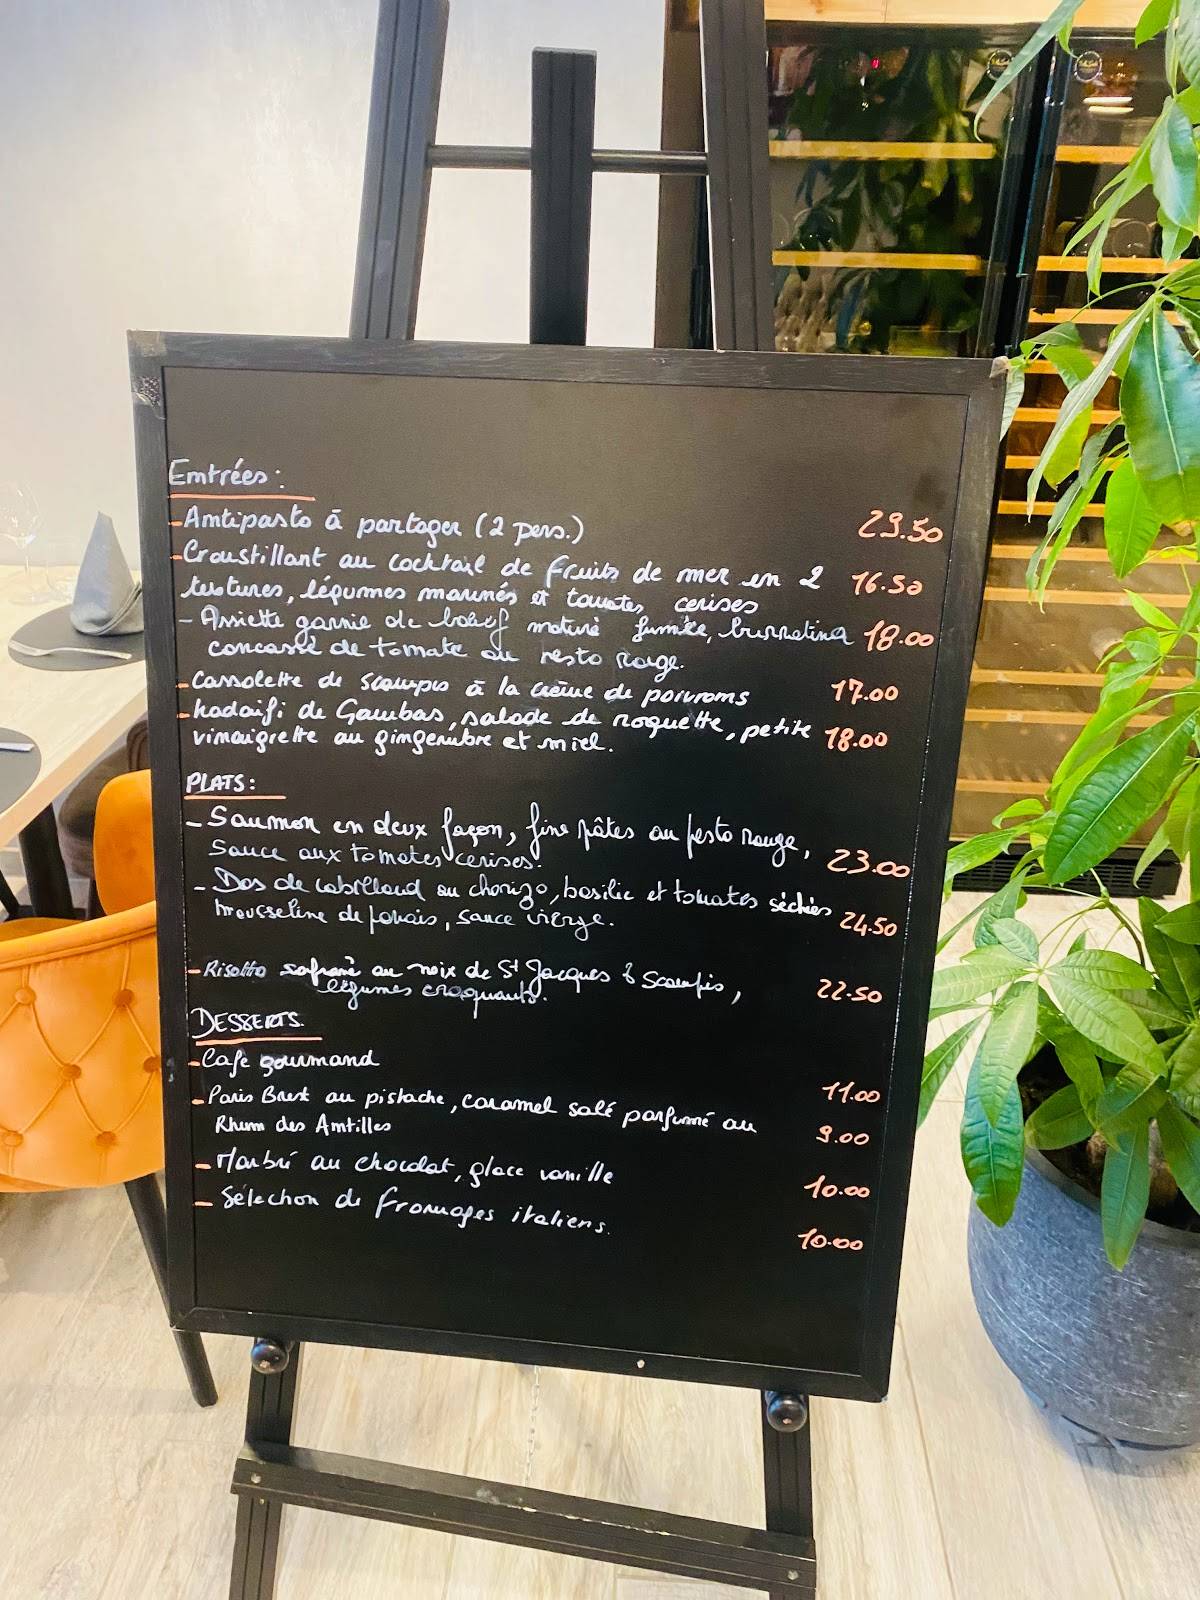 Entrées :
- Antipasto à partager (2 pers.) 29.50
- Croustillant au cocktail de fruits de mer en 2 16.50
textures, légumes marinés et tomates cerises
- Assiette garnie de boeuf maturé fumée, burratina 18.00
concassé de tomate au pesto rouge.
- Cassolette de scampis à la crème de poivrons 17.00
- Kadaifi de Gambas, salade de roquette, petite 18.00
vinaigrette au gingembre et miel.
PLATS :
- Saumon en deux façon, fine pâtes au pesto rouge, 23.00
Sauce aux tomates cerises.
- Dos de cabillaud au chorizo, basilic et tomates séchées 24.50
mousseline de panais, sauce vierge.
- Risotto safrané au noix de St Jacques & Scampis, 22.50
légumes croquants.
DESSERTS.
- Café gourmand 11.00
- Paris Brest au pistache, caramel salé parfumé au 9.00
Rhum des Antilles
- Marbré au chocolat, glace vanille 10.00
- Sélection de fromages italiens. 10.00